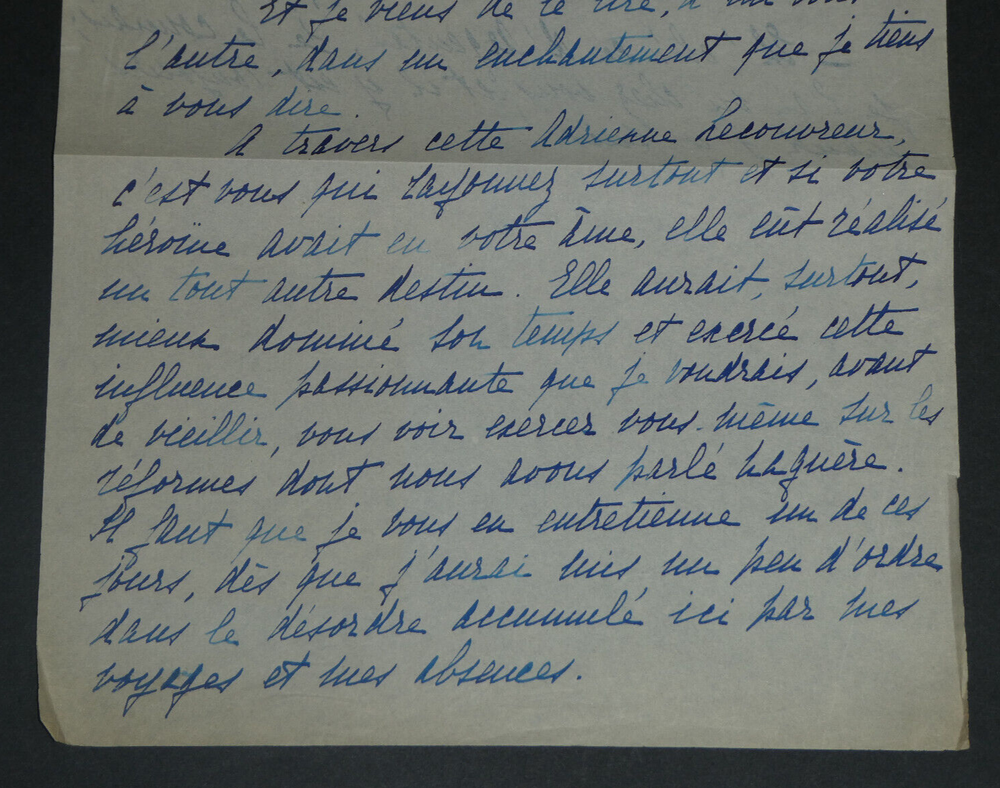 Et je viens de le lire, d'un bout
l'autre, dans un enchantement que je tiens
à vous dire.
A travers cette Adrienne Lecouvreur,
c'est vous qui rayonnez surtout et si votre
héroïne avait eu votre âme, elle eût réalisé
un tout autre destin. Elle aurait, surtout,
mieux dominé son temps et exercé cette
influence passionnante que je voudrais, avant
de vieillir, vous voir exercer vous-même sur les
réformes dont nous avons parlé naguère.
Il faut que je vous en entretienne un de ces
jours, dès que j'aurai mis un peu d'ordre
dans le désordre accumulé ici par mes
voyages et mes absences.